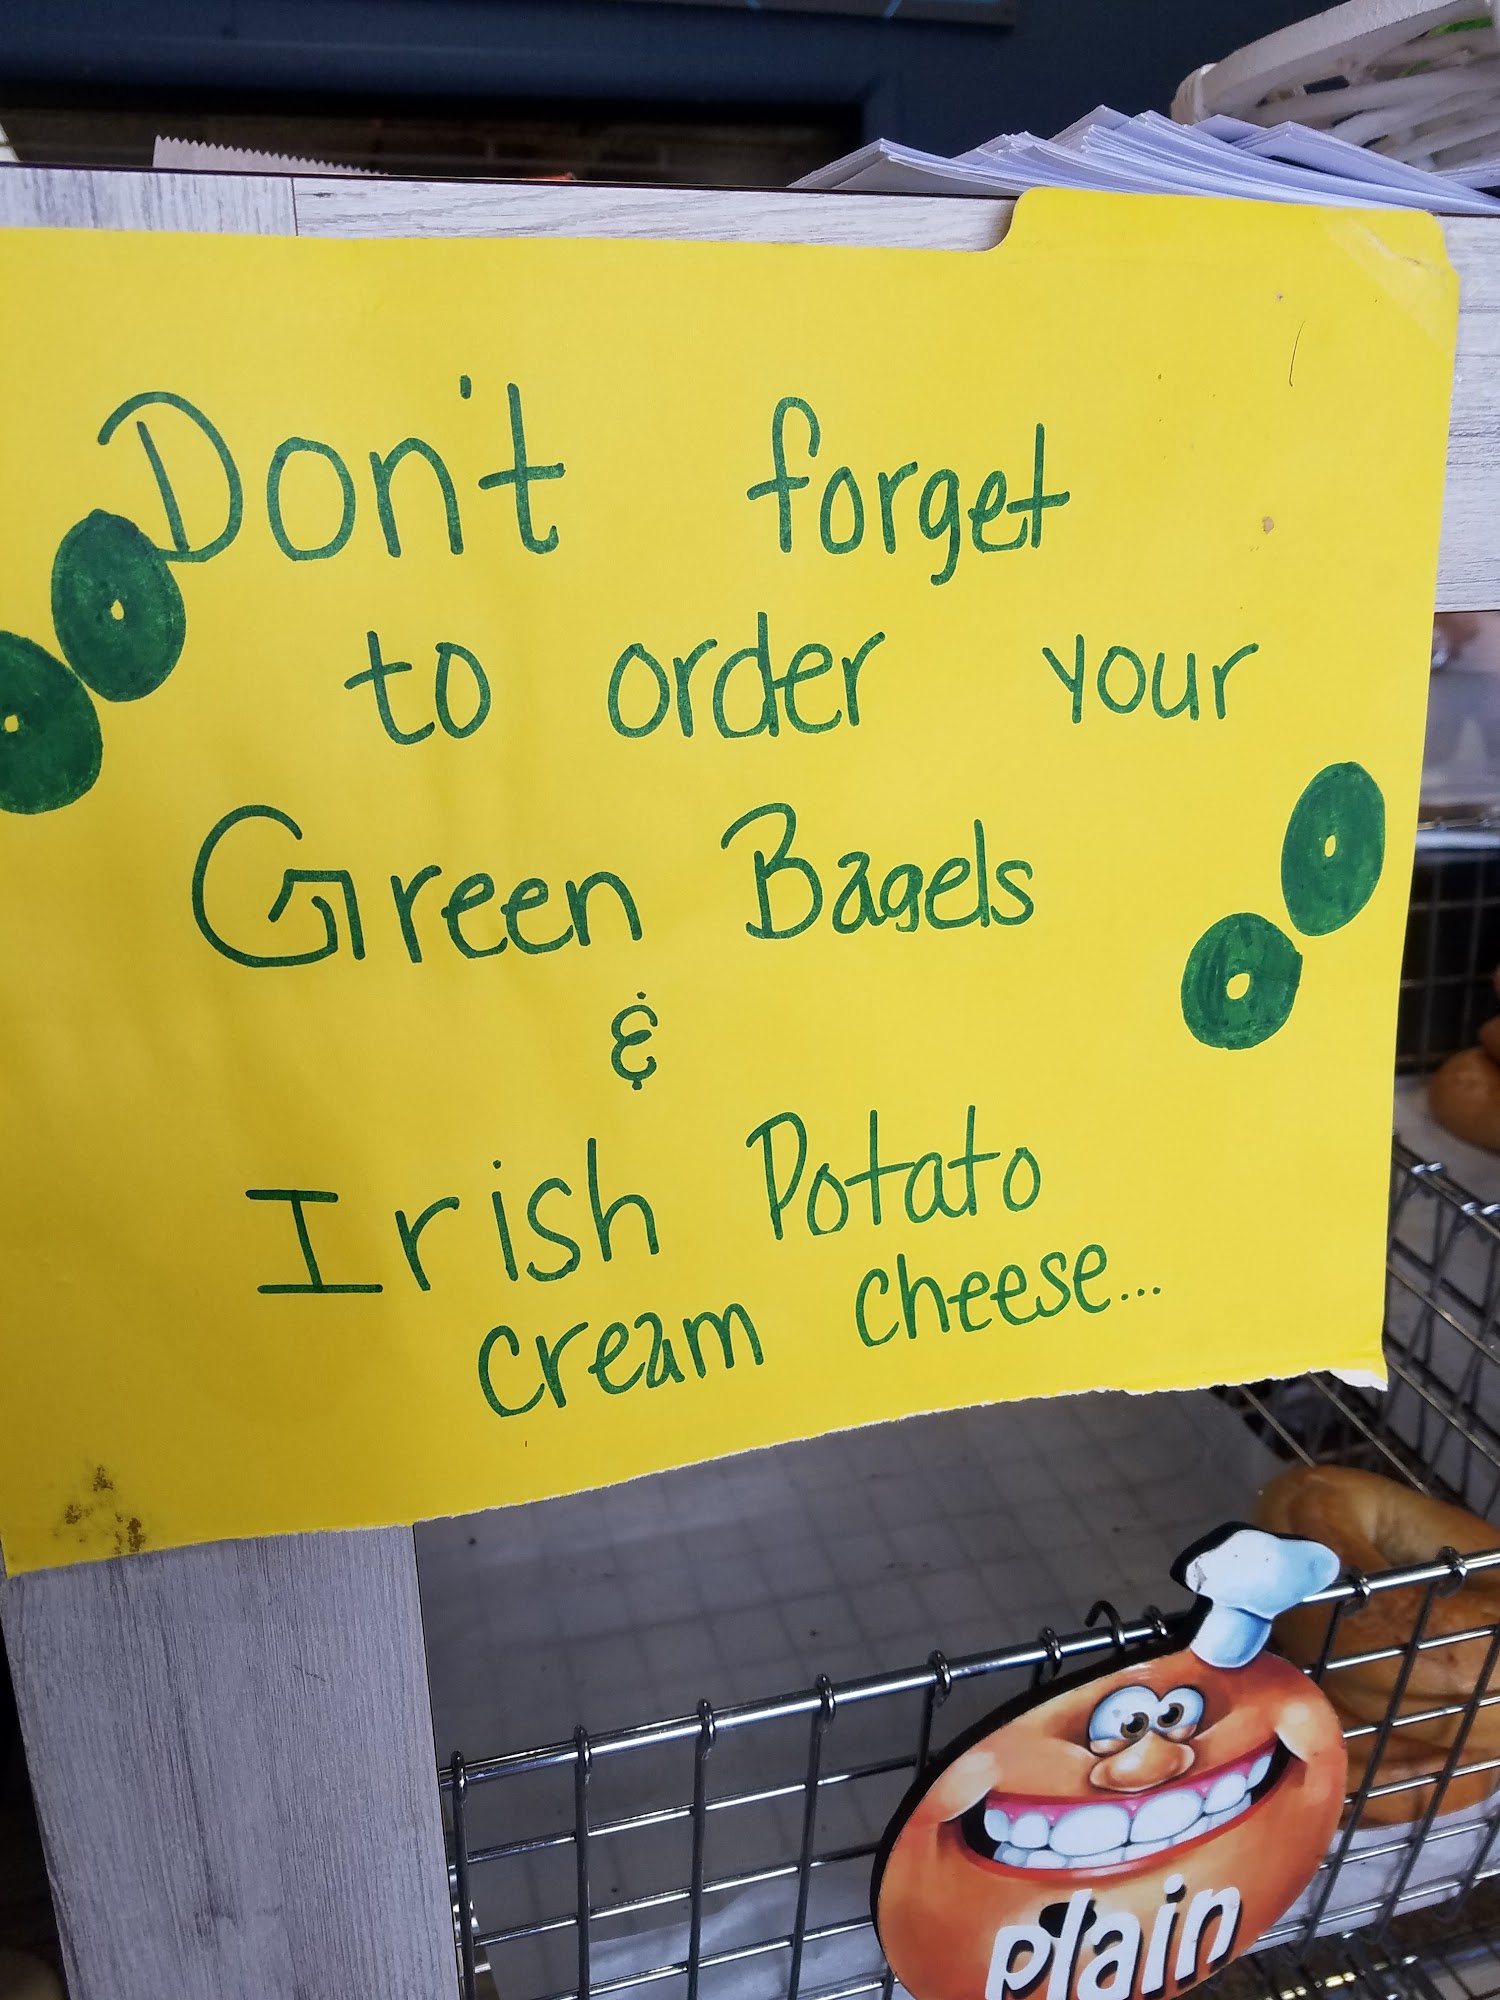 Don't forget
to order your
Green Bagels
&
Irish Potato
cream cheese...
plain